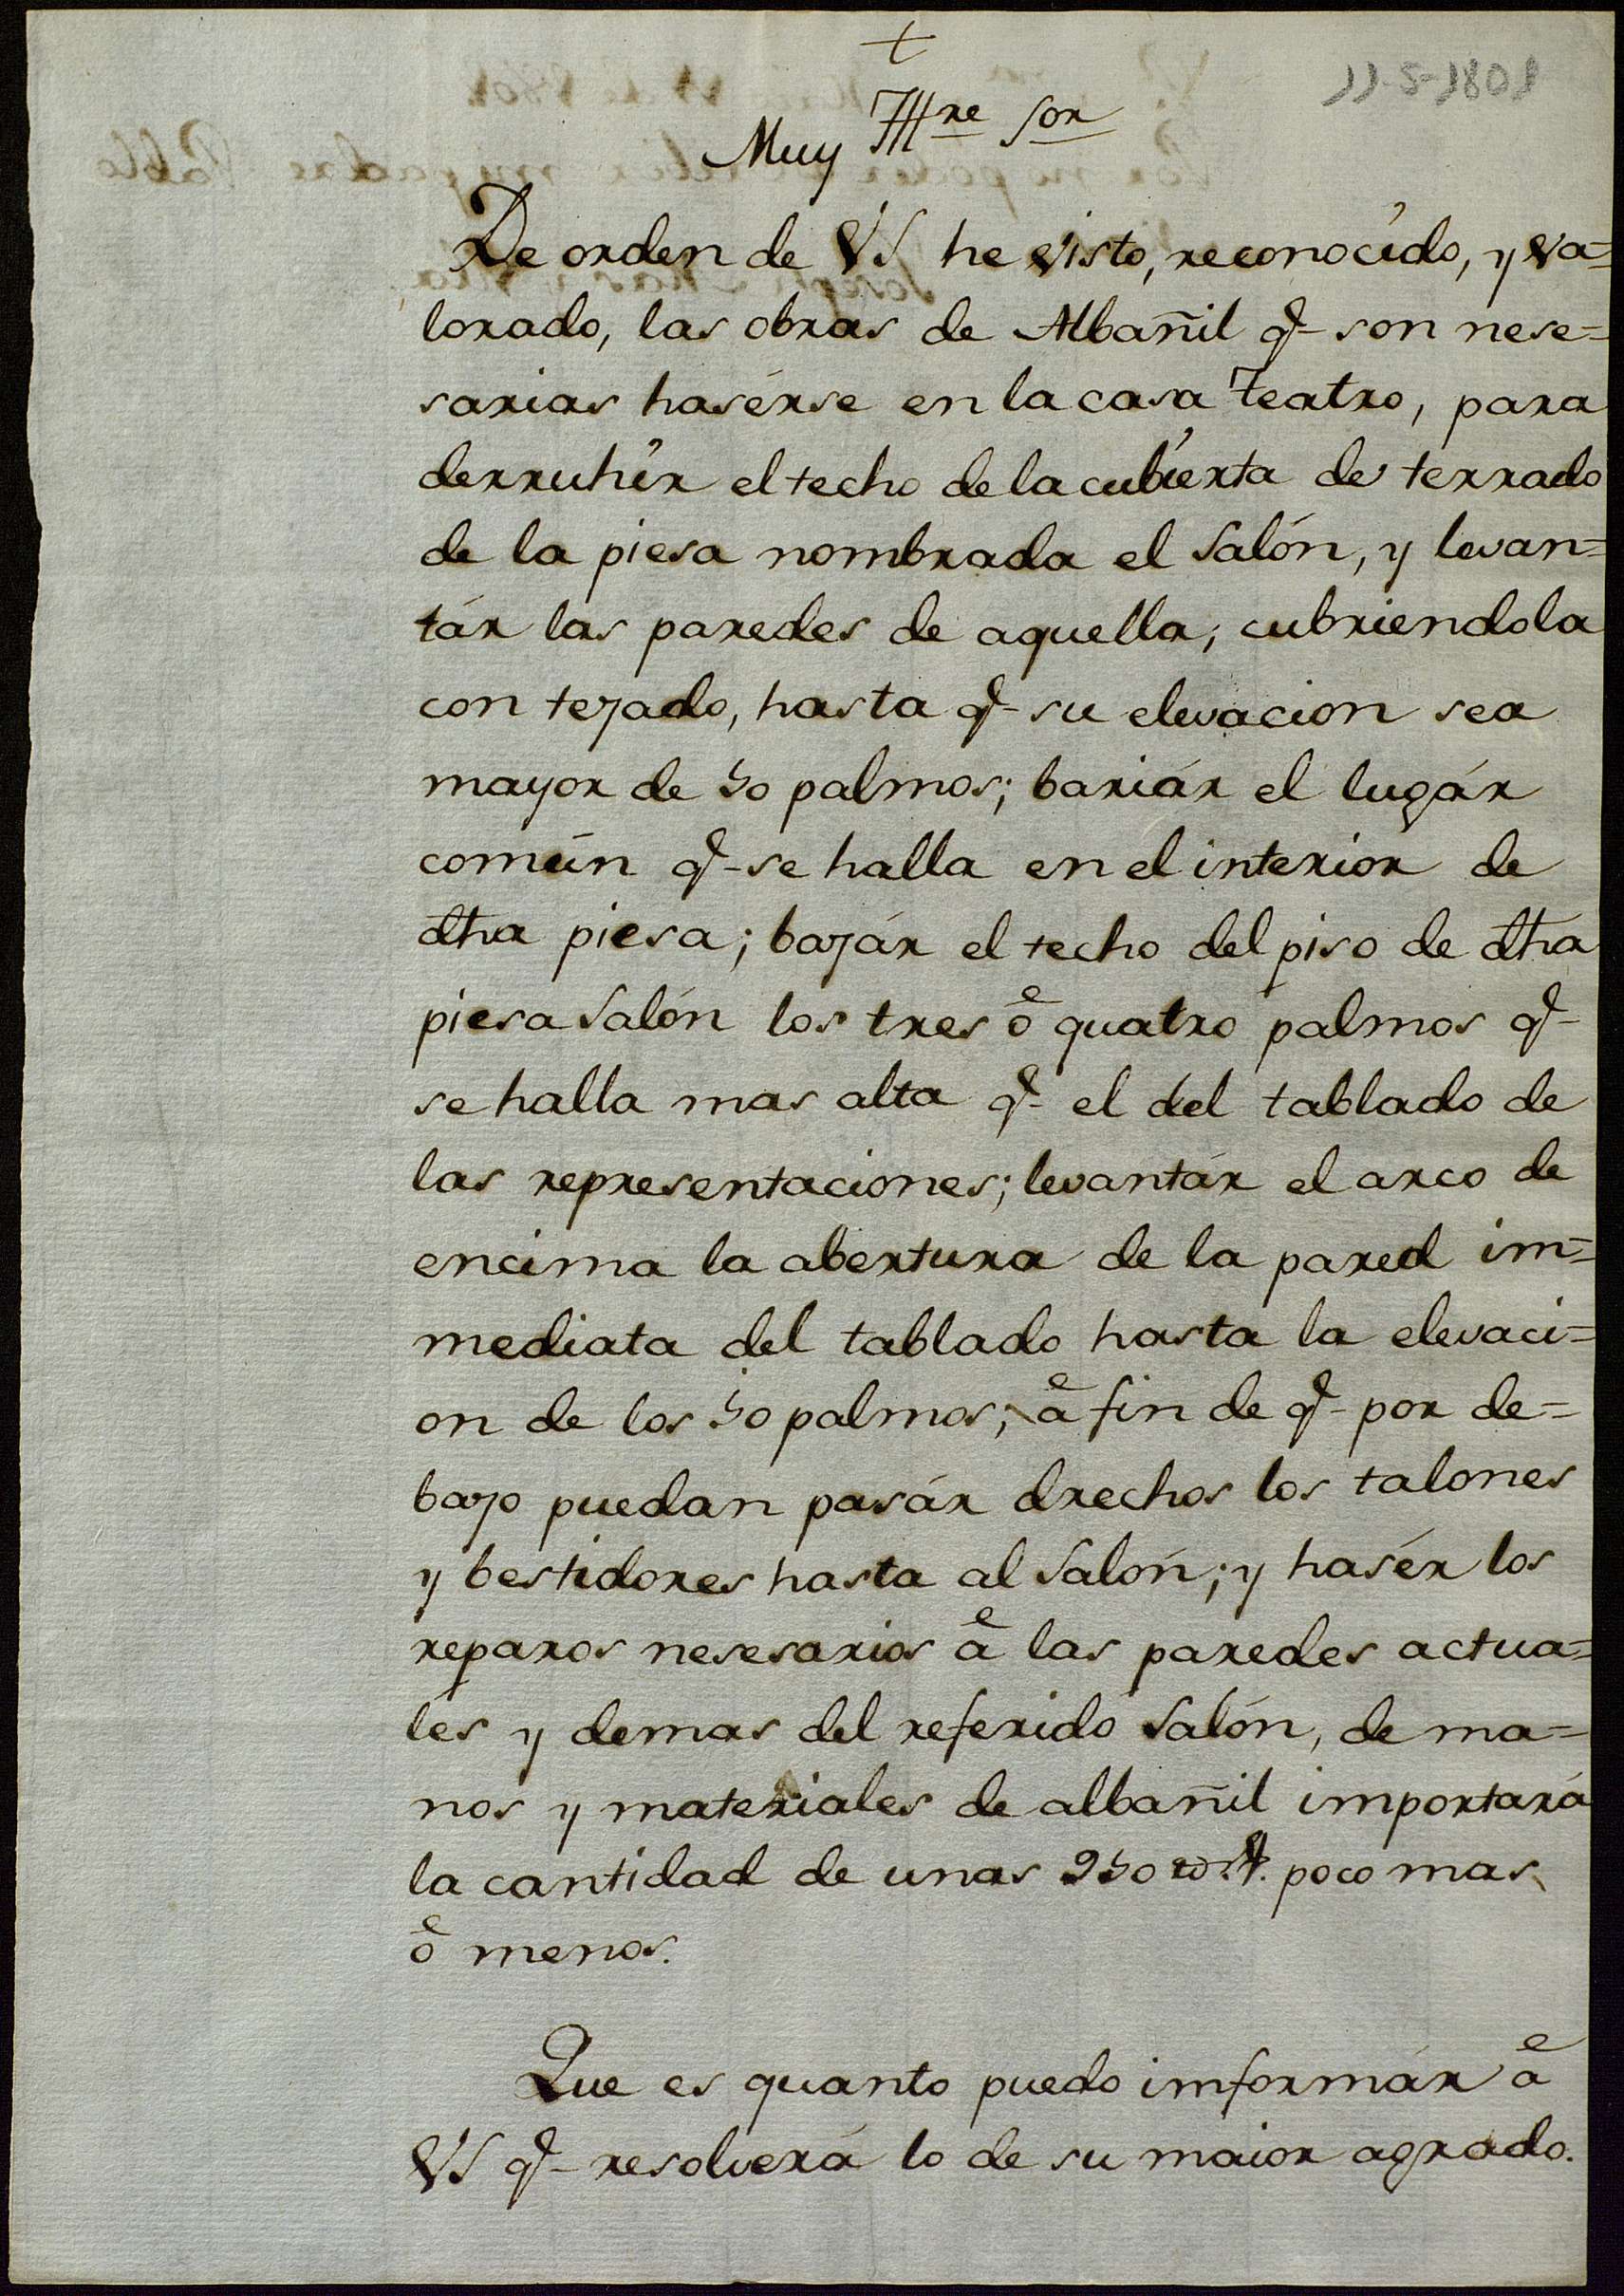 +
11-5-1801
Muy Illre Sor
De orden de VS he visto, reconocido, y va=
lorado, las obras de Albañil q.e son nese=
sarias hasérse en la casa Teatro, para
derruhír el techo de la cubierta de terrado
de la piesa nombrada el Salón, y levan=
tár las paredes de aquella; cubriendola
con tejado, hasta q.e su elevacion sea
mayor de 50 palmos; bariár el lugár
común q.e se halla en el interior de
dha piesa; bajár el techo del piso de dha
piesa Salón los tres ô quatro palmos q.e
se halla mas alta q.e el del tablado de
las representaciones; levantár el arco de
encima la abertura de la pared im=
mediata del tablado hasta la elevaci=
on de los 50 palmos; â fin de q.e por de=
bajo puedan pasár drechos los talones
y bestidores hasta al Salón; y hasér los
reparos nesesarios â las paredes actua=
les y demas del referido Salón, de ma=
nos y materiales de albañil importará
la cantidad de unas 950 poco mas
ô menos.
Que es quanto puedo imformár â
VS q.e resolverá lo de su maior agrado.